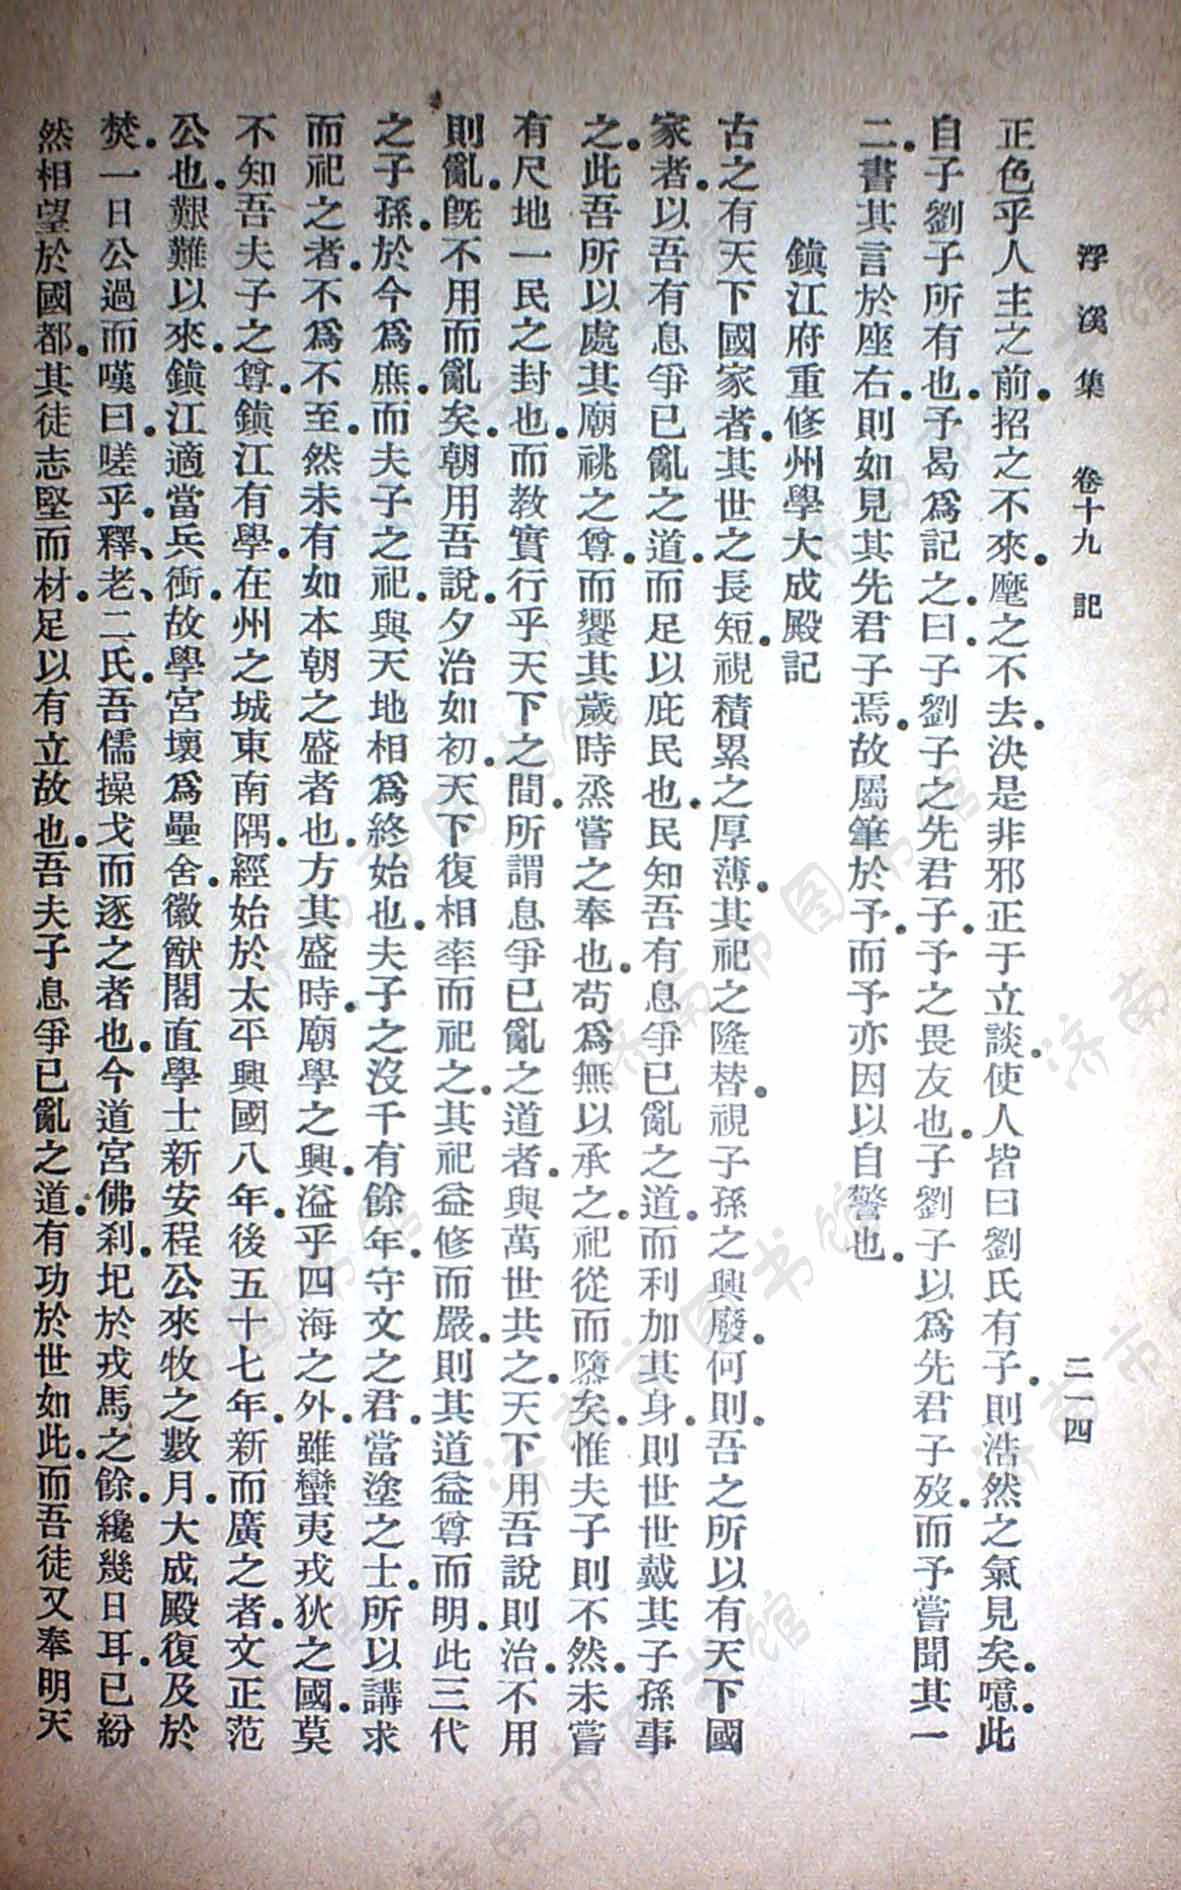 浮溪集 卷十九 記 二一四
正色乎人主之前.招之不來.麾之不去.決是非邪正于立談.使人皆曰劉氏有子.則浩然之氣見矣.噫.此
自子劉子所有也.予曷爲記之.曰.子劉子之先君子.予之畏友也.子劉子以爲先君子歿.而予嘗聞其一
二.書其言於座右.則如見其先君子焉.故屬筆於予.而予亦因以自警也.
鎮江府重修州學大成殿記
古之有天下國家者.其世之長短.視積累之厚薄.其祀之隆替.視子孫之興廢.何則.吾之所以有天下國
家者.以吾有息爭已亂之道.而足以庇民也.民知吾有息爭已亂之道.而利加其身.則世世戴其子孫事
之.此吾所以處其廟祧之尊.而饗其歲時烝嘗之奉也.苟爲無以承之.祀從而隳矣.惟夫子則不然.未嘗
有尺地一民之封也.而教實行乎天下之間.所謂息爭已亂之道者.與萬世共之.天下用吾說則治.不用
則亂.旣不用而亂矣.朝用吾說.夕治如初.天下復相率而祀之.其祀益修而嚴.則其道益尊而明.此三代
之子孫.於今爲庶.而夫子之祀.與天地相爲終始也.夫子之沒千有餘年.守文之君.當塗之士.所以講求
而祀之者.不爲不至.然未有如本朝之盛者也.方其盛時.廟學之興.溢乎四海之外.雖蠻夷戎狄之國.莫
不知吾夫子之尊.鎮江有學.在州之城東南隅.經始於太平興國八年.後五十七年.新而廣之者.文正范
公也.艱難以來.鎮江適當兵衝.故學宮壞爲壘舍.徽猷閣直學士新安程公來牧之數月.大成殿復及於
焚.一日公過而嘆曰.嗟乎.釋、老、二氏.吾儒操戈而逐之者也.今道宮佛刹.圯於戎馬之餘.纔幾日耳.已紛
然相望於國都.其徒志堅而材.足以有立故也.吾夫子息爭已亂之道.有功於世如此.而吾徒又奉明天